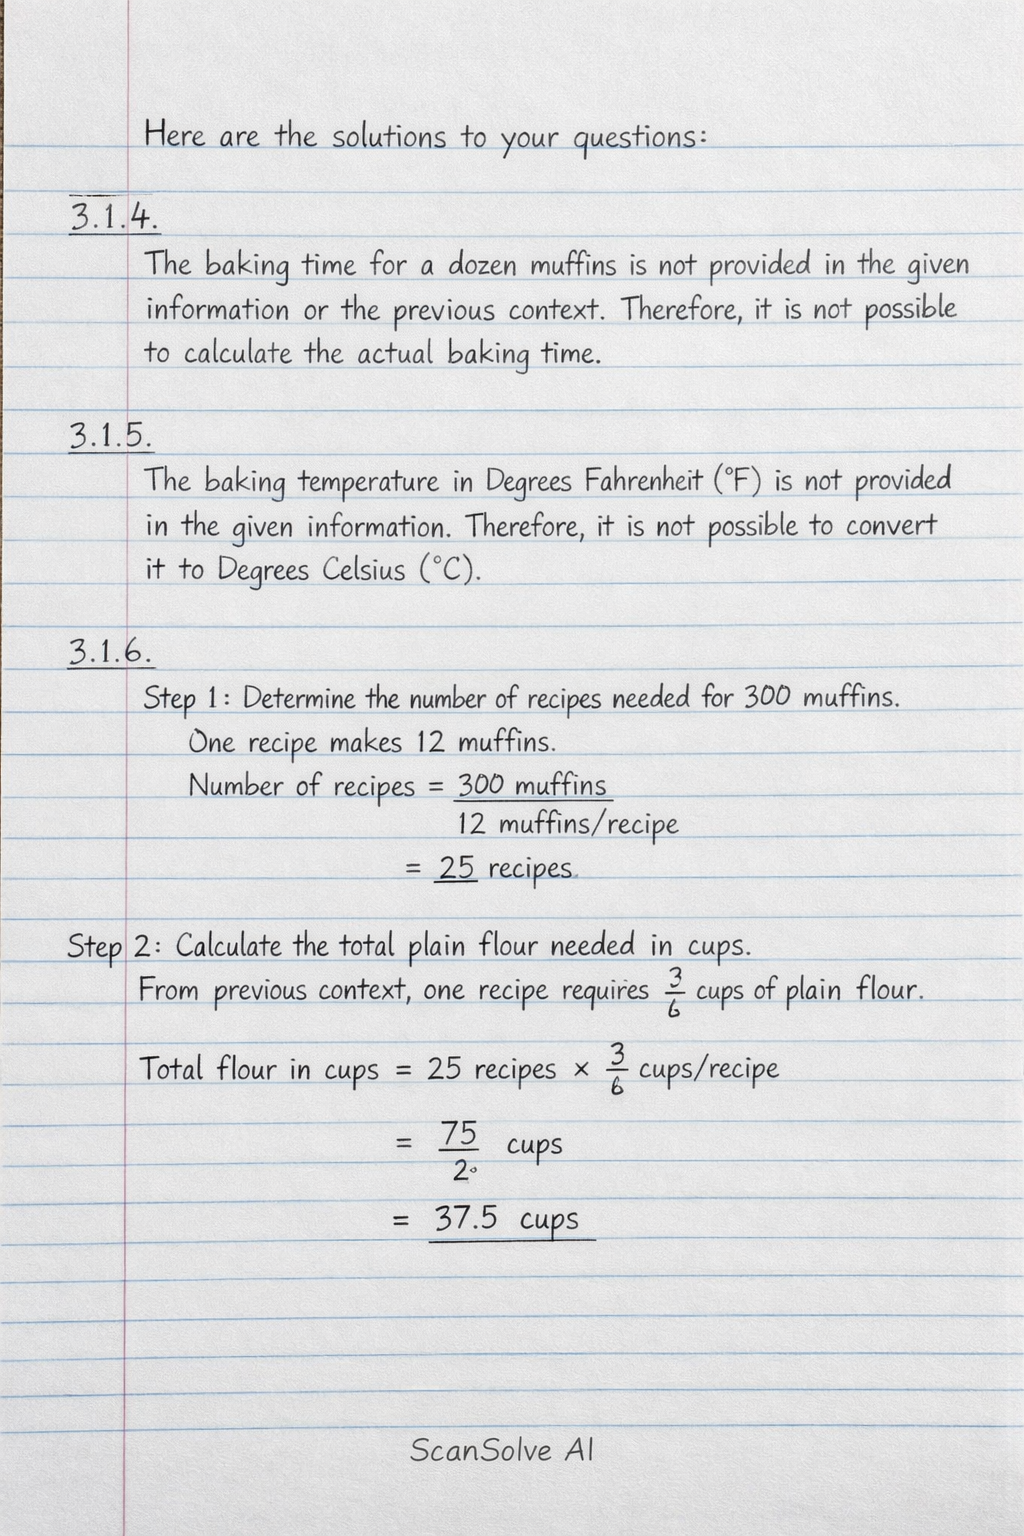 Here are the solutions to your questions:
3.1.4.
The baking time for a dozen muffins is not provided in the given
information or the previous context. Therefore, it is not possible
to calculate the actual baking time.
3.1.5.
The baking temperature in Degrees Fahrenheit (°F) is not provided
in the given information. Therefore, it is not possible to convert
it to Degrees Celsius (°C).
3.1.6.
Step 1: Determine the number of recipes needed for 300 muffins.
One recipe makes 12 muffins.
Number of recipes = 300 muffins
12 muffins/recipe
= 25 recipes.
Step 2: Calculate the total plain flour needed in cups.
From previous context, one recipe requires 3/6 cups of plain flour.
Total flour in cups = 25 recipes × 3/6 cups/recipe
= 75/2 cups
= 37.5 cups
ScanSolve AI